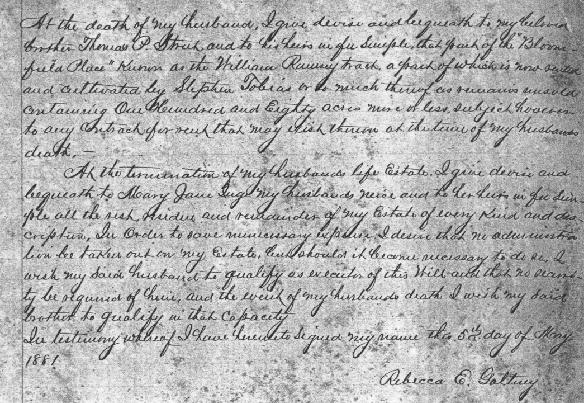 At the death of my husband, I give devise and bequeath to my beloved
brother Thomas P. and to his heirs in fee simple, that part of the "Bloom
field Place" Known as the William tract, a part of which is now rented
and cultivated by Stephen Tobias or so much thereof as remains unsold
containing One Hundred and Eighty acres more or less, subject however
to any contract for rent that may exist thereon at the time of my husbands
death. —
At the termination of my husbands life Estate. I give devise and
bequeath to Mary Jane my husbands niece and to her heirs in fee Sim-
ple all the rest, residue and remainder of my Estate of every Kind and des
cription. In Order to save unnecessary expense I desire that no administra
tion be taken out on my Estate, but should it become necessary to do so, I
wish my said husband to qualify as executor of this Will and that no securi
ty be required of him, and the event of my husbands death I wish my said
brother to qualify in that capacity
In testimony whereof I have hereto signed my name this 5th day of May
1881
Rebecca E.